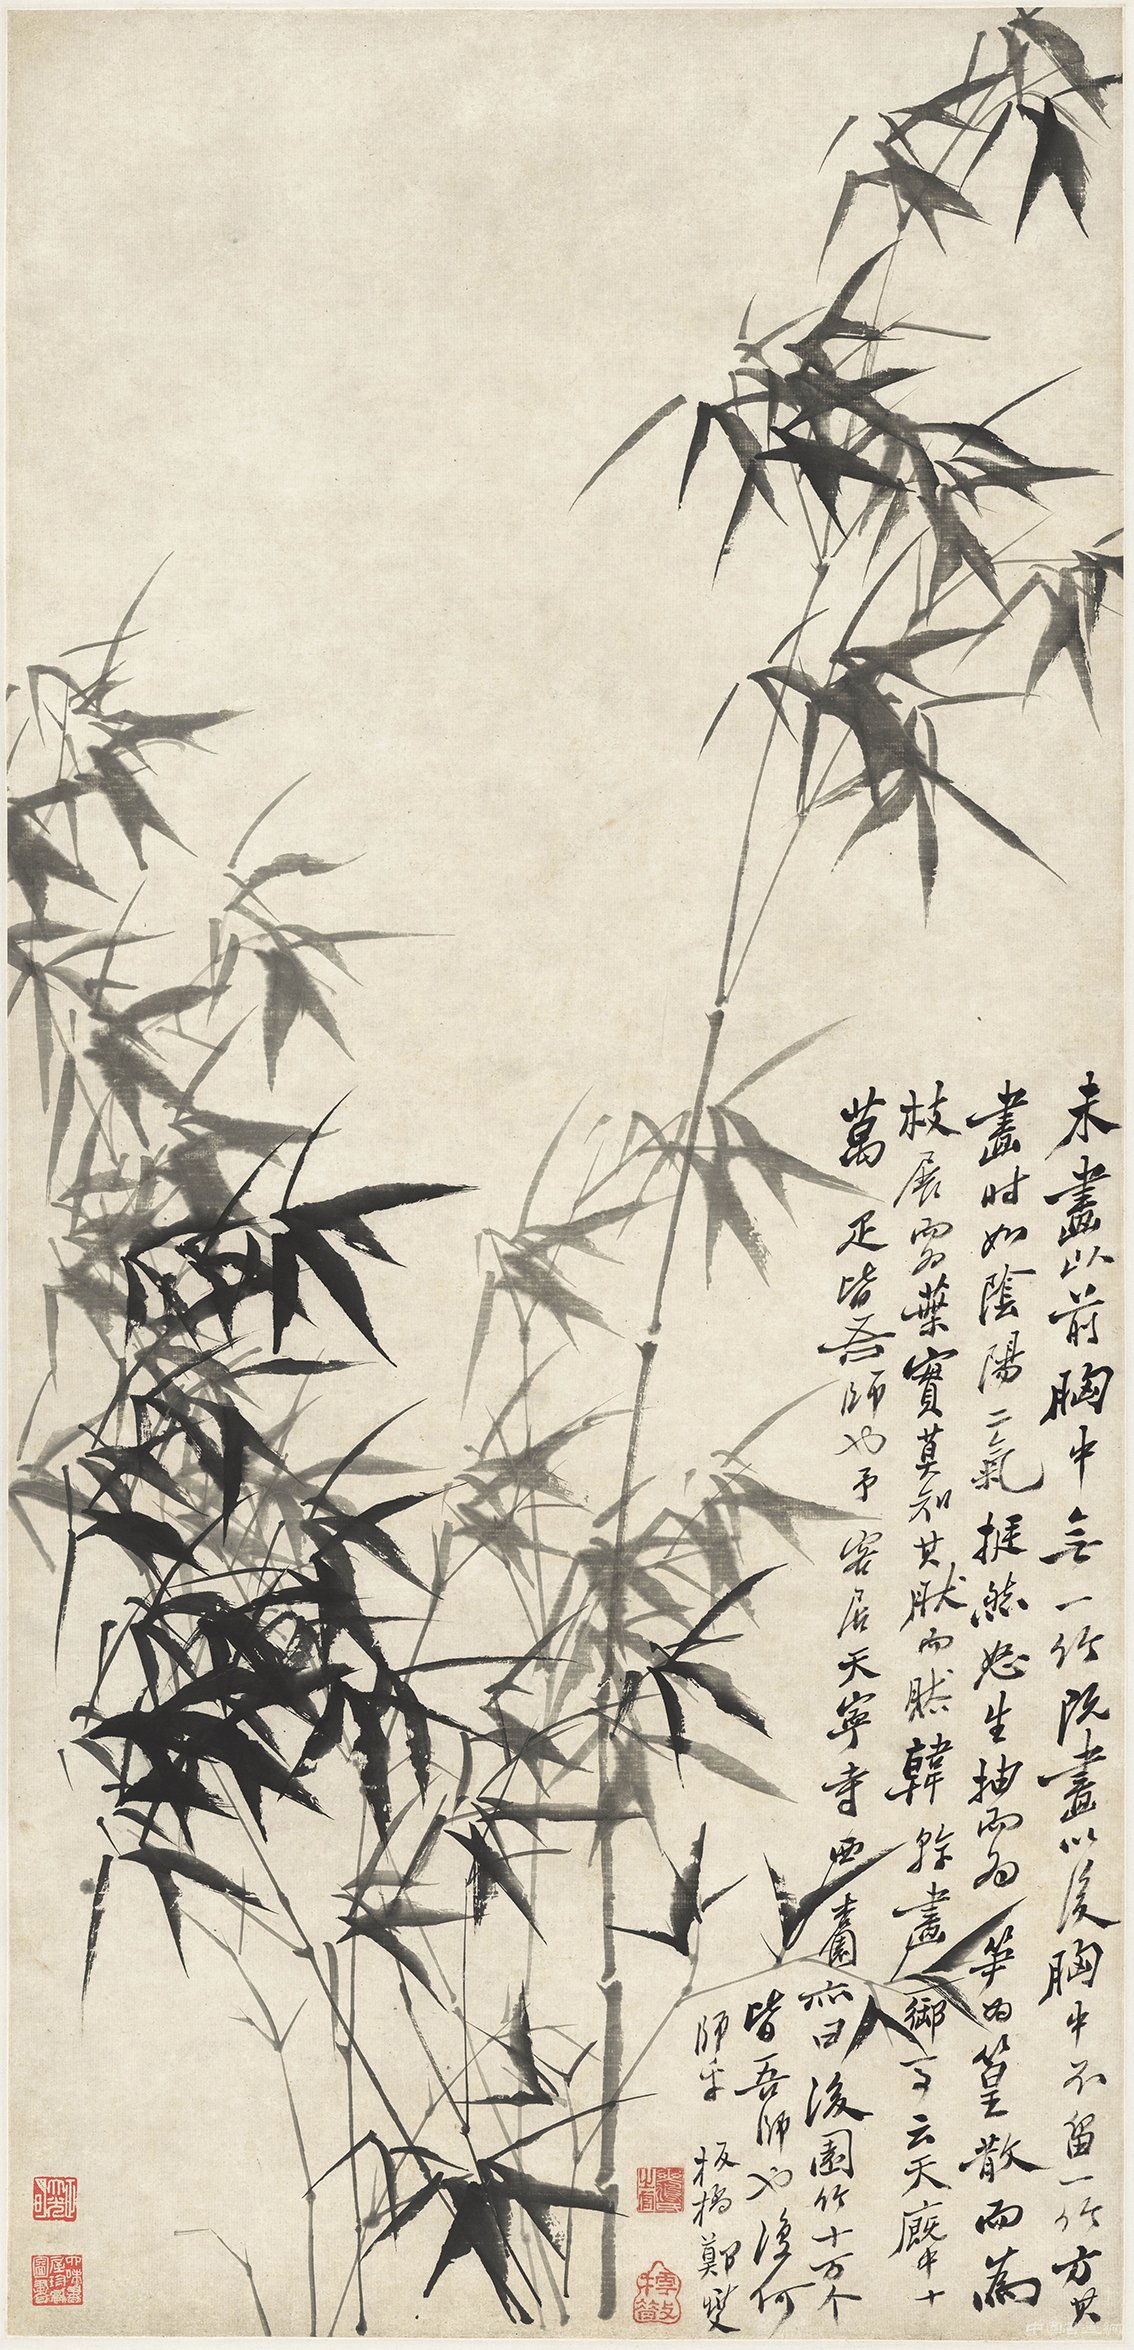 未畫以前胸中無一竹既畫以後胸中不留一竹方其
畫時如陰陽二氣挺然怒生抽而為笋為篁散而為
枝展而為葉實莫知其然而然韓幹畫御馬云天廐中十
萬疋皆吾師也予客居天寧寺西
齋亦曰後園竹十万个
皆吾師也復何
師乎 板橋鄭燮